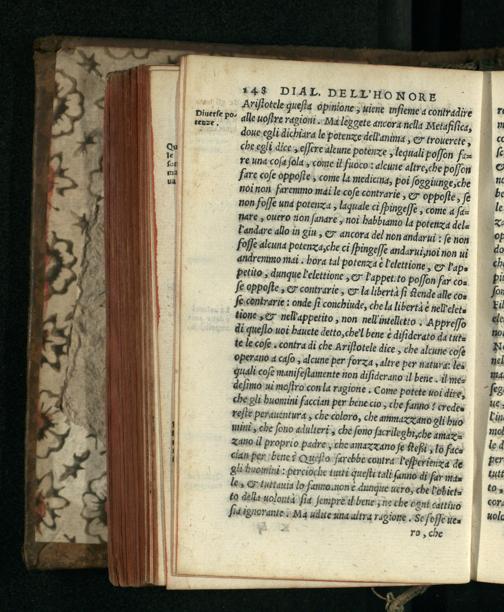 148 DIAL. DELL'HONORE
Aristotele questa opinione, uiene insieme a contradire
Diuerse po-
tenze.
alle uostre ragioni. Ma leggete ancora nella Metafisica,
doue egli dichiara le potenze dell'anima, & trouerete,
che egli dice, essere alcune potenze, lequali posson fa-
re una cosa sola, come il fuoco: alcune altre, che posson
fare cose opposte, come la medicina, poi soggiunge, che
noi non faremmo mai le cose contrarie, & opposte, se
non fosse una potenza, laquale ci spingesse, come a sa-
nare, ouero non sanare, noi habbiamo la potenza del-
l'andare allo in giu, & ancora del non andarui: se non
fosse alcuna potenza, che ci spingesse andarui, noi non ui
andremmo mai. hora tal potenza è l'elettione, & l'ap-
petito, dunque l'elettione, & l'appetito posson far co-
se opposte, & contrarie, & la libertà si stende alle co-
se contrarie: onde si conchiude, che la libertà è nell'elet-
tione, & nell'appetito, non nell'intelletto. Appresso
di questo uoi hauete detto, che'l bene è disiderato da tut-
te le cose. contra di che Aristotele dice, che alcune cose
operano a caso, alcune per forza, altre per natura: le-
quali cose manifestamente non disiderano il bene. il me-
desimo ui mostro con la ragione. Come potete uoi dire,
che gli huomini faccian per bene cio, che fanno? crede-
reste perauentura, che coloro, che ammazzano gli huo
mini, che sono adulteri, che sono sacrileghi, che amaz-
zano il proprio padre, che amazzano se stessi, lo fac-
cian per bene? Questo sarebbe contra l'esperienza de
gli huomini: percioche tutti questi tali sanno di far ma-
le, & tuttauia lo fanno. non è dunque uero, che l'obiet-
to della uolontà sia sempre il bene, ne che ogni cattiuo
sia ignorante. Ma udite una altra ragione. Se fosse ue-
ro, che